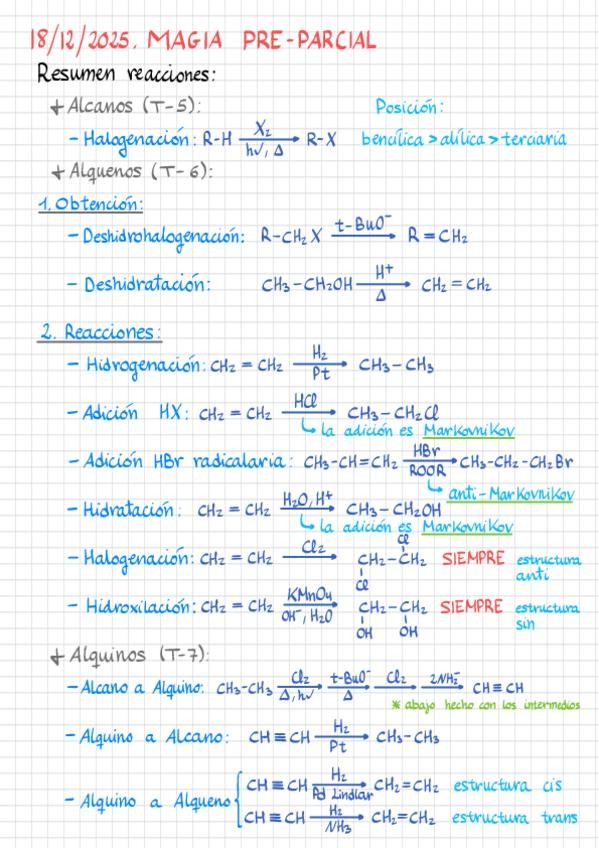 18/12/2025. MAGIA PRE-PARCIAL
Resumen reacciones:
+ Alcanos (T-5): Posición:
- Halogenación: R-H X₂ hν, Δ → R-X bencílica > alílica > terciaria
+ Alquenos (T-6):
1. Obtención:
- Deshidrohalogenación: R-CH₂X t-BuO⁻ → R=CH₂
- Deshidratación: CH₃-CH₂OH H⁺ Δ → CH₂=CH₂
2. Reacciones:
- Hidrogenación: CH₂=CH₂ H₂ Pt → CH₃-CH₃
- Adición HX: CH₂=CH₂ HCl → CH₃-CH₂Cl
↳ la adición es Markovnikov
- Adición HBr radicalaria: CH₃-CH=CH₂ HBr ROOR → CH₃-CH₂-CH₂Br
↳ anti-Markovnikov
- Hidratación: CH₂=CH₂ H₂O, H⁺ → CH₃-CH₂OH
↳ la adición es Markovnikov
- Halogenación: CH₂=CH₂ Cl₂ → CH₂-CH₂ Cl Cl SIEMPRE estructura anti
- Hidroxilación: CH₂=CH₂ KMnO₄ OH⁻, H₂O → CH₂-CH₂ OH OH SIEMPRE estructura sin
+ Alquinos (T-7):
- Alcano a Alquino: CH₃-CH₃ Cl₂ Δ, hν → t-BuO⁻ Δ → Cl₂ → 2NH₂⁻ → CH≡CH
* abajo hecho con los intermedios
- Alquino a Alcano: CH≡CH H₂ Pt → CH₃-CH₃
- Alquino a Alqueno { CH≡CH H₂ Pd Lindlar → CH₂=CH₂ estructura cis
CH≡CH H₂ NH₃ → CH₂=CH₂ estructura trans